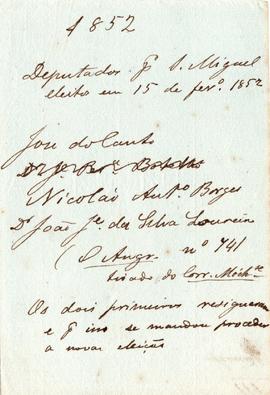 1852
Deputados p.r S. Miguel
eleito em 15 de fev.o 1852
José do Canto
Nicoláo Ant.o Borges
Dr João J.e da Silva Loureiro
(O Angr. nº 741
tirado do Corr. Mich.se
Os dois primeiros resignaram
e p.r isso se mandou proceder
a novas eleições